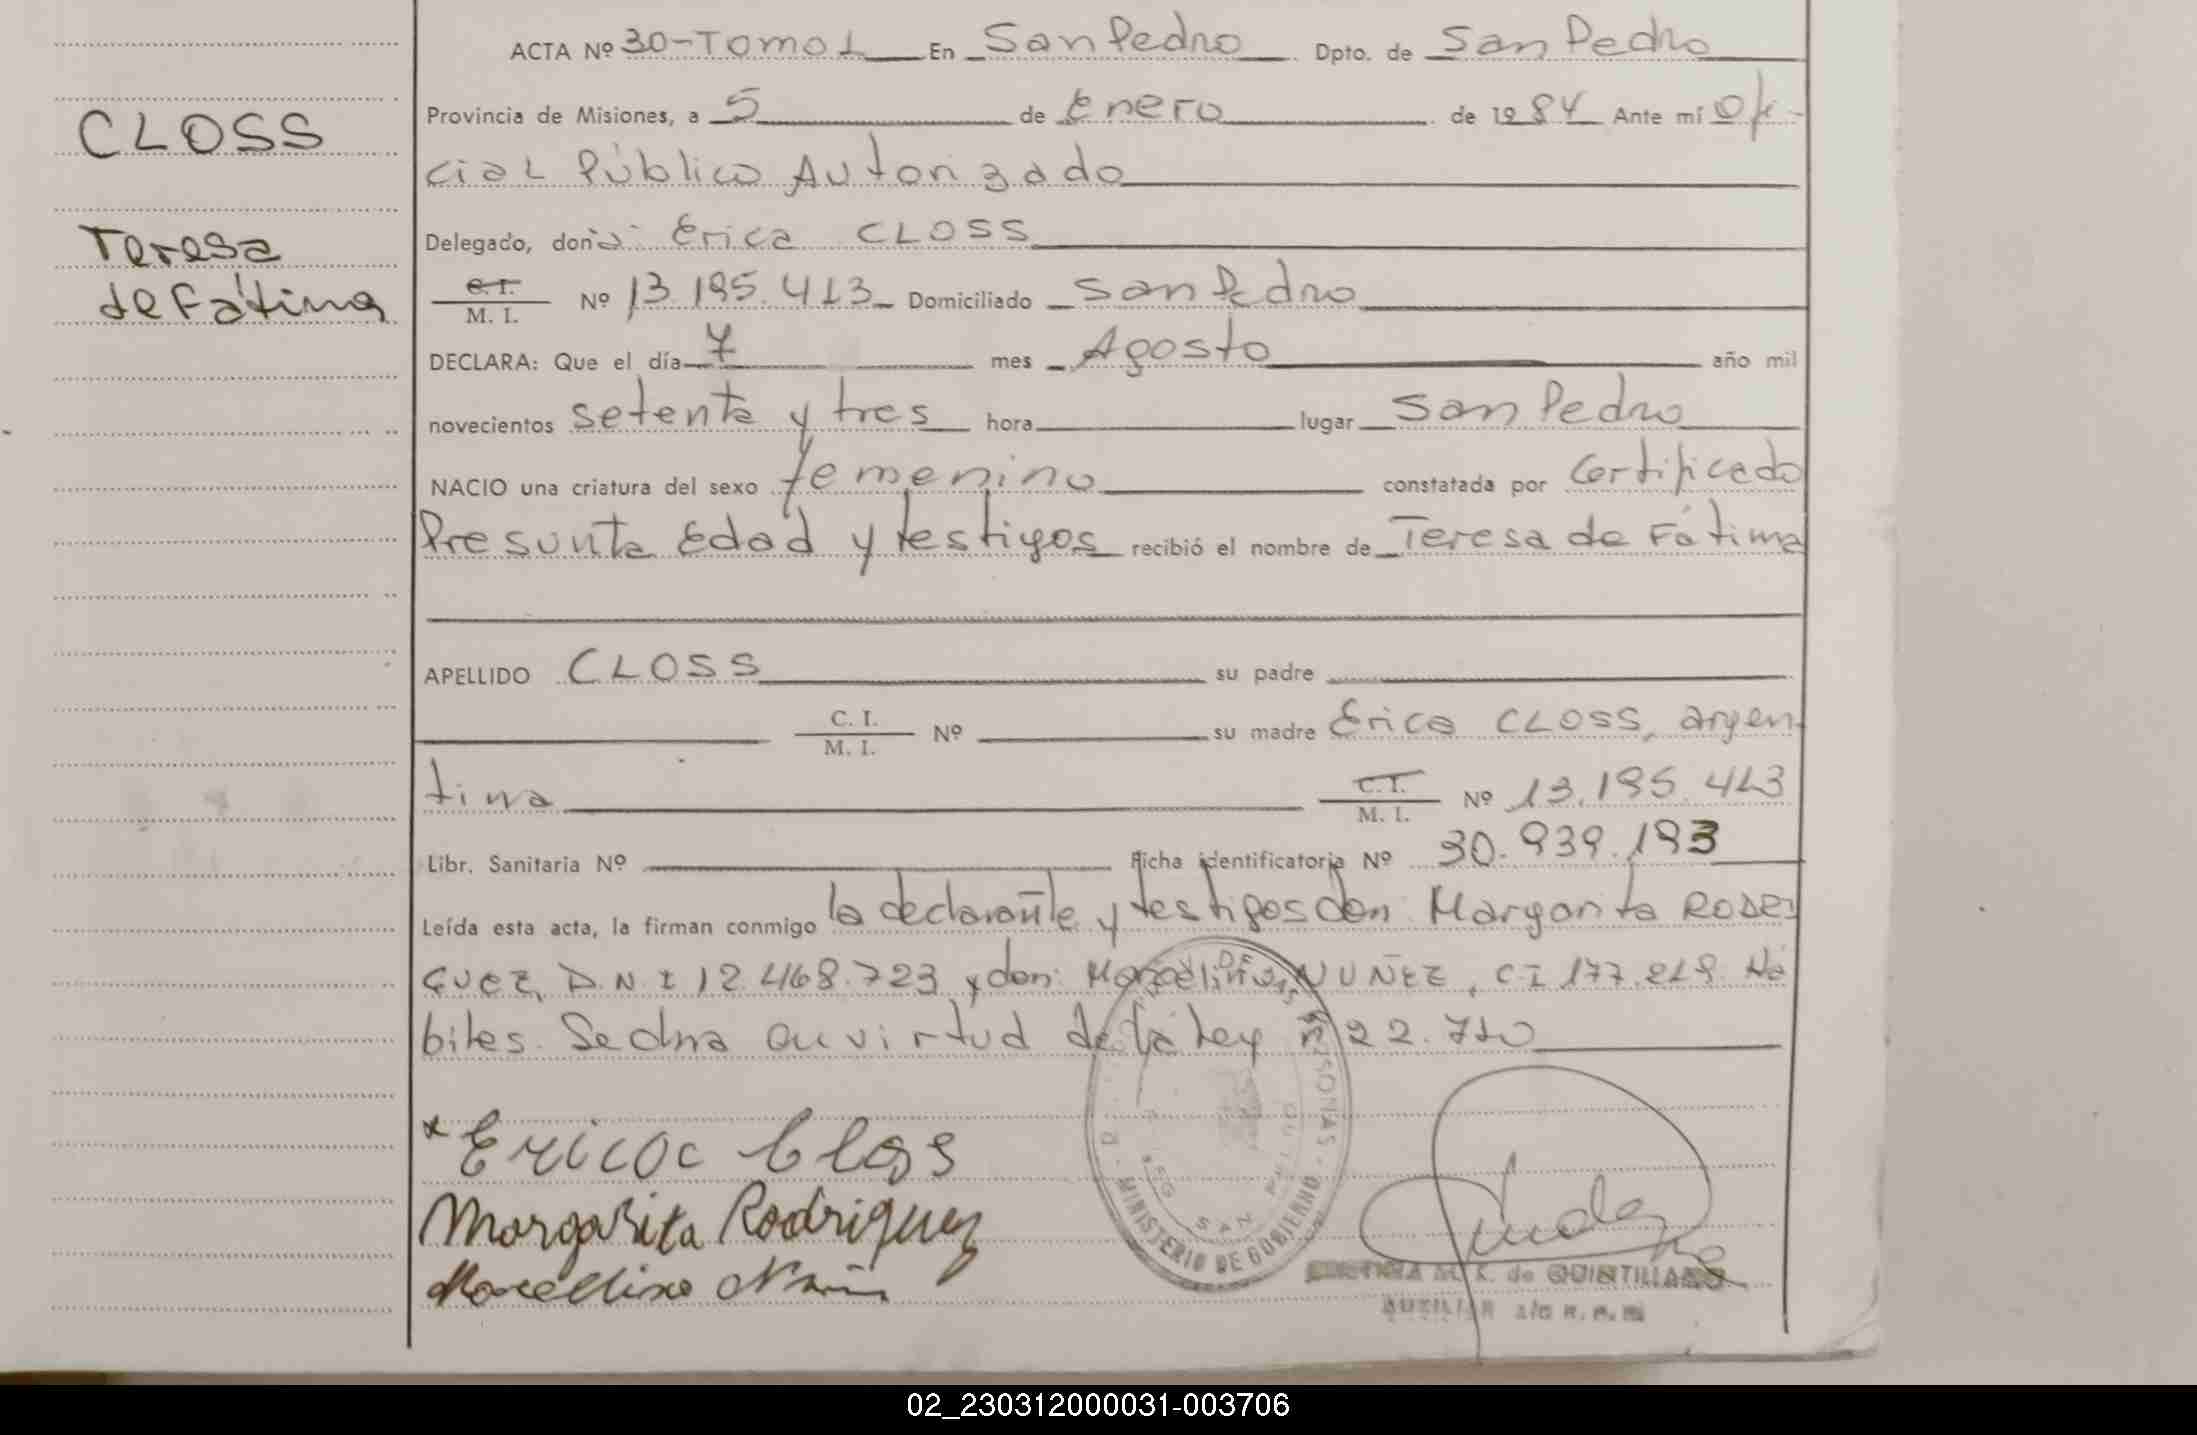 CLOSS
Teresa
de Fátima
ACTA Nº 30-Tomo 1 En San Pedro Dpto. de San Pedro
Provincia de Misiones, a 5 de Enero de 1984 Ante mí Ofi-
cial Público Autorizado
Delegado, donña: Erica CLOSS
C. I.
M. I. Nº 13.195.413 Domiciliado San Pedro
DECLARA: Que el día 7 mes Agosto año mil
novecientos setenta y tres hora lugar San Pedro
NACIO una criatura del sexo femenino constatada por Certificado
Presunta Edad y testigos recibió el nombre de Teresa de Fátima
APELLIDO CLOSS su padre
C. I.
M. I. Nº su madre Erica CLOSS, argen-
tina C. I.
M. I. Nº 13.195.413
Libr. Sanitaria Nº Ficha identificatoria Nº 30.939.193
Leída esta acta, la firman conmigo la declarante y testigos don: Margarita RODRI
GUEZ, D.N.I 12.468.723 y don: Marcelino NUÑEZ, CI 177.219 Há
biles. Se dna en virtud de la Ley nº 22.710
* Erica Closs
Margarita Rodriguez
Marcelino
MINISTERIO DE GOBIERNO
PERSONAS
SAN
M. K. de QUINTILLANO
AUXILIAR
02_230312000031-003706